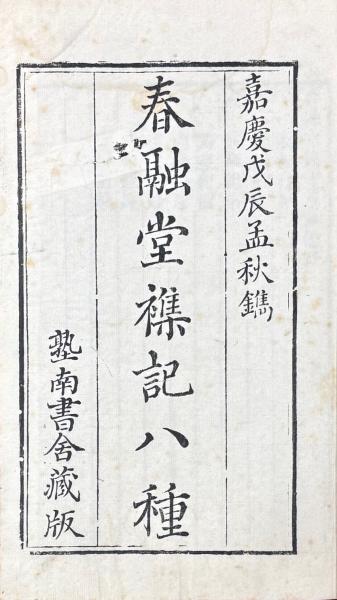 嘉慶戊辰孟秋鐫
春融堂襍記八種
塾南書舍藏版